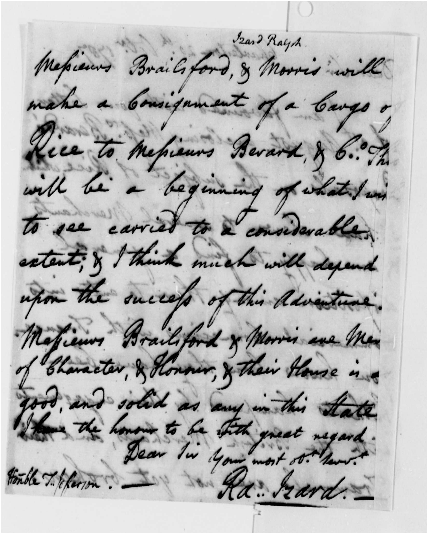 Izard Ralph
Messieurs Brailsford, & Morris will
make a Consignment of a Cargo o
Rice to Messieurs Berard, & Co. Th
will be a beginning of what I wis
to see carried to a considerable
extent; & I think much will depend
upon the success of this Adventure.
Messieurs Brailsford & Morris are Men
of Character, & Honour, & their House is a
good, and solid as any in this State
I have the honour to be with great regard.
Dear Sir Your most obt. Servt.
Honble T. Jefferson. —
Ra.. Izard. —